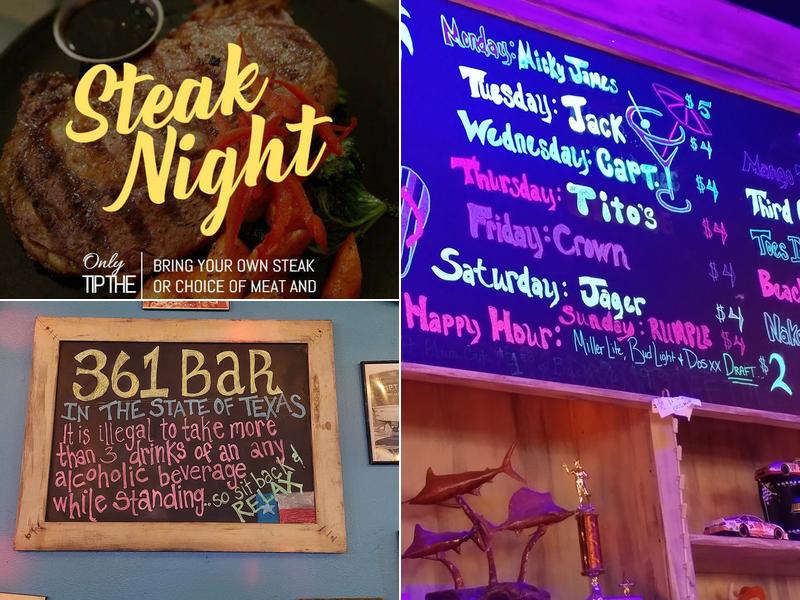 Steak
Night
Only
TIP THE
BRING YOUR OWN STEAK
OR CHOICE OF MEAT AND
361 BAR
IN THE STATE OF TEXAS
It is illegal to take more
than 3 drinks of an any
alcoholic beverage
while standing..so sit back &
RELAX
Monday: Micky James $5
Tuesday: Jack $4
Wednesday: Capt. $4
Thursday: Tito's $4
Friday: Crown $4
Saturday: Jager $4
Sunday: RUMPLE $4
Happy Hour: Miller Lite, Bud Light & Dos xx DRAFT $2
Mango
Third
Toes
Beac
Nake